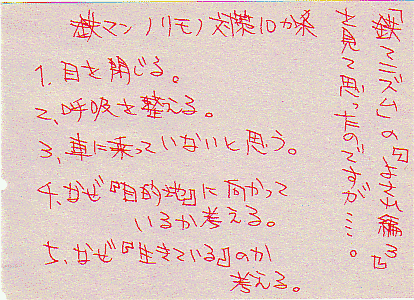 「鉄マニズム」の『よされ編3』
を見て思ったのですが…。
鉄マンノリモノ対策10か条
1. 目を閉じる。
2. 呼吸を整える。
3. 車に乗っていないと思う。
4. なぜ『目的地』に向かって
いるか考える。
5. なぜ『生きている』のか
考える。